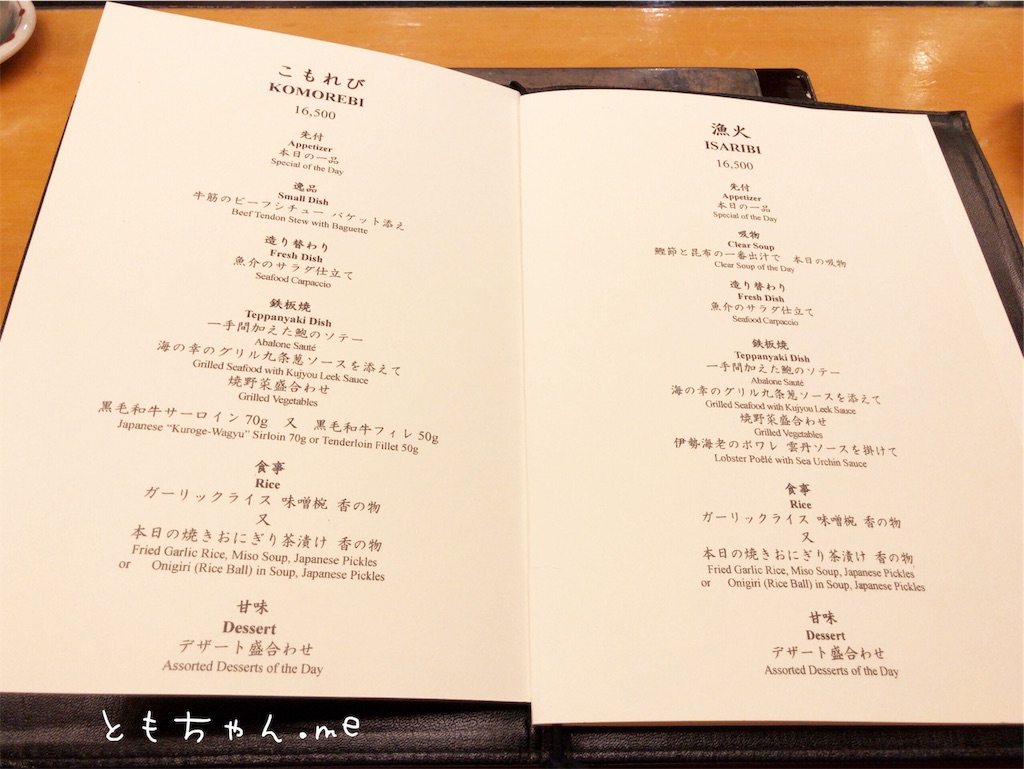 こもれび
KOMOREBI
16,500
先付
Appetizer
本日の一品
Special of the Day
逸品
Small Dish
牛筋のビーフシチュー バゲット添え
Beef Tendon Stew with Baguette
造り替わり
Fresh Dish
魚介のサラダ仕立て
Seafood Carpaccio
鉄板焼
Teppanyaki Dish
一手間加えた鮑のソテー
Abalone Sauté
海の幸のグリル九条葱ソースを添えて
Grilled Seafood with Kujyou Leek Sauce
焼野菜盛合わせ
Grilled Vegetables
黒毛和牛サーロイン 70g 又 黒毛和牛フィレ 50g
Japanese “Kuroge-Wagyu” Sirloin 70g or Tenderloin Fillet 50g
食事
Rice
ガーリックライス 味噌椀 香の物
又
本日の焼きおにぎり茶漬け 香の物
Fried Garlic Rice, Miso Soup, Japanese Pickles
or Onigiri (Rice Ball) in Soup, Japanese Pickles
甘味
Dessert
デザート盛合わせ
Assorted Desserts of the Day
漁火
ISARIBI
16,500
先付
Appetizer
本日の一品
Special of the Day
吸物
Clear Soup
鰹節と昆布の一番出汁で 本日の吸物
Clear Soup of the Day
造り替わり
Fresh Dish
魚介のサラダ仕立て
Seafood Carpaccio
鉄板焼
Teppanyaki Dish
一手間加えた鮑のソテー
Abalone Sauté
海の幸のグリル九条葱ソースを添えて
Grilled Seafood with Kujyou Leek Sauce
焼野菜盛合わせ
Grilled Vegetables
伊勢海老のポワレ 雲丹ソースを掛けて
Lobster Poêlé with Sea Urchin Sauce
食事
Rice
ガーリックライス 味噌椀 香の物
又
本日の焼きおにぎり茶漬け 香の物
Fried Garlic Rice, Miso Soup, Japanese Pickles
or Onigiri (Rice Ball) in Soup, Japanese Pickles
甘味
Dessert
デザート盛合わせ
Assorted Desserts of the Day
ともちゃん.me